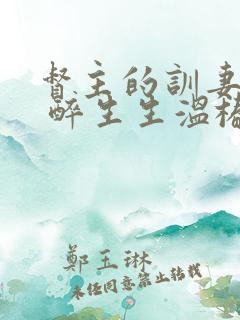 督主的訓妻
醉生生溫椿
鄭玉琳
未經同意禁止轉載